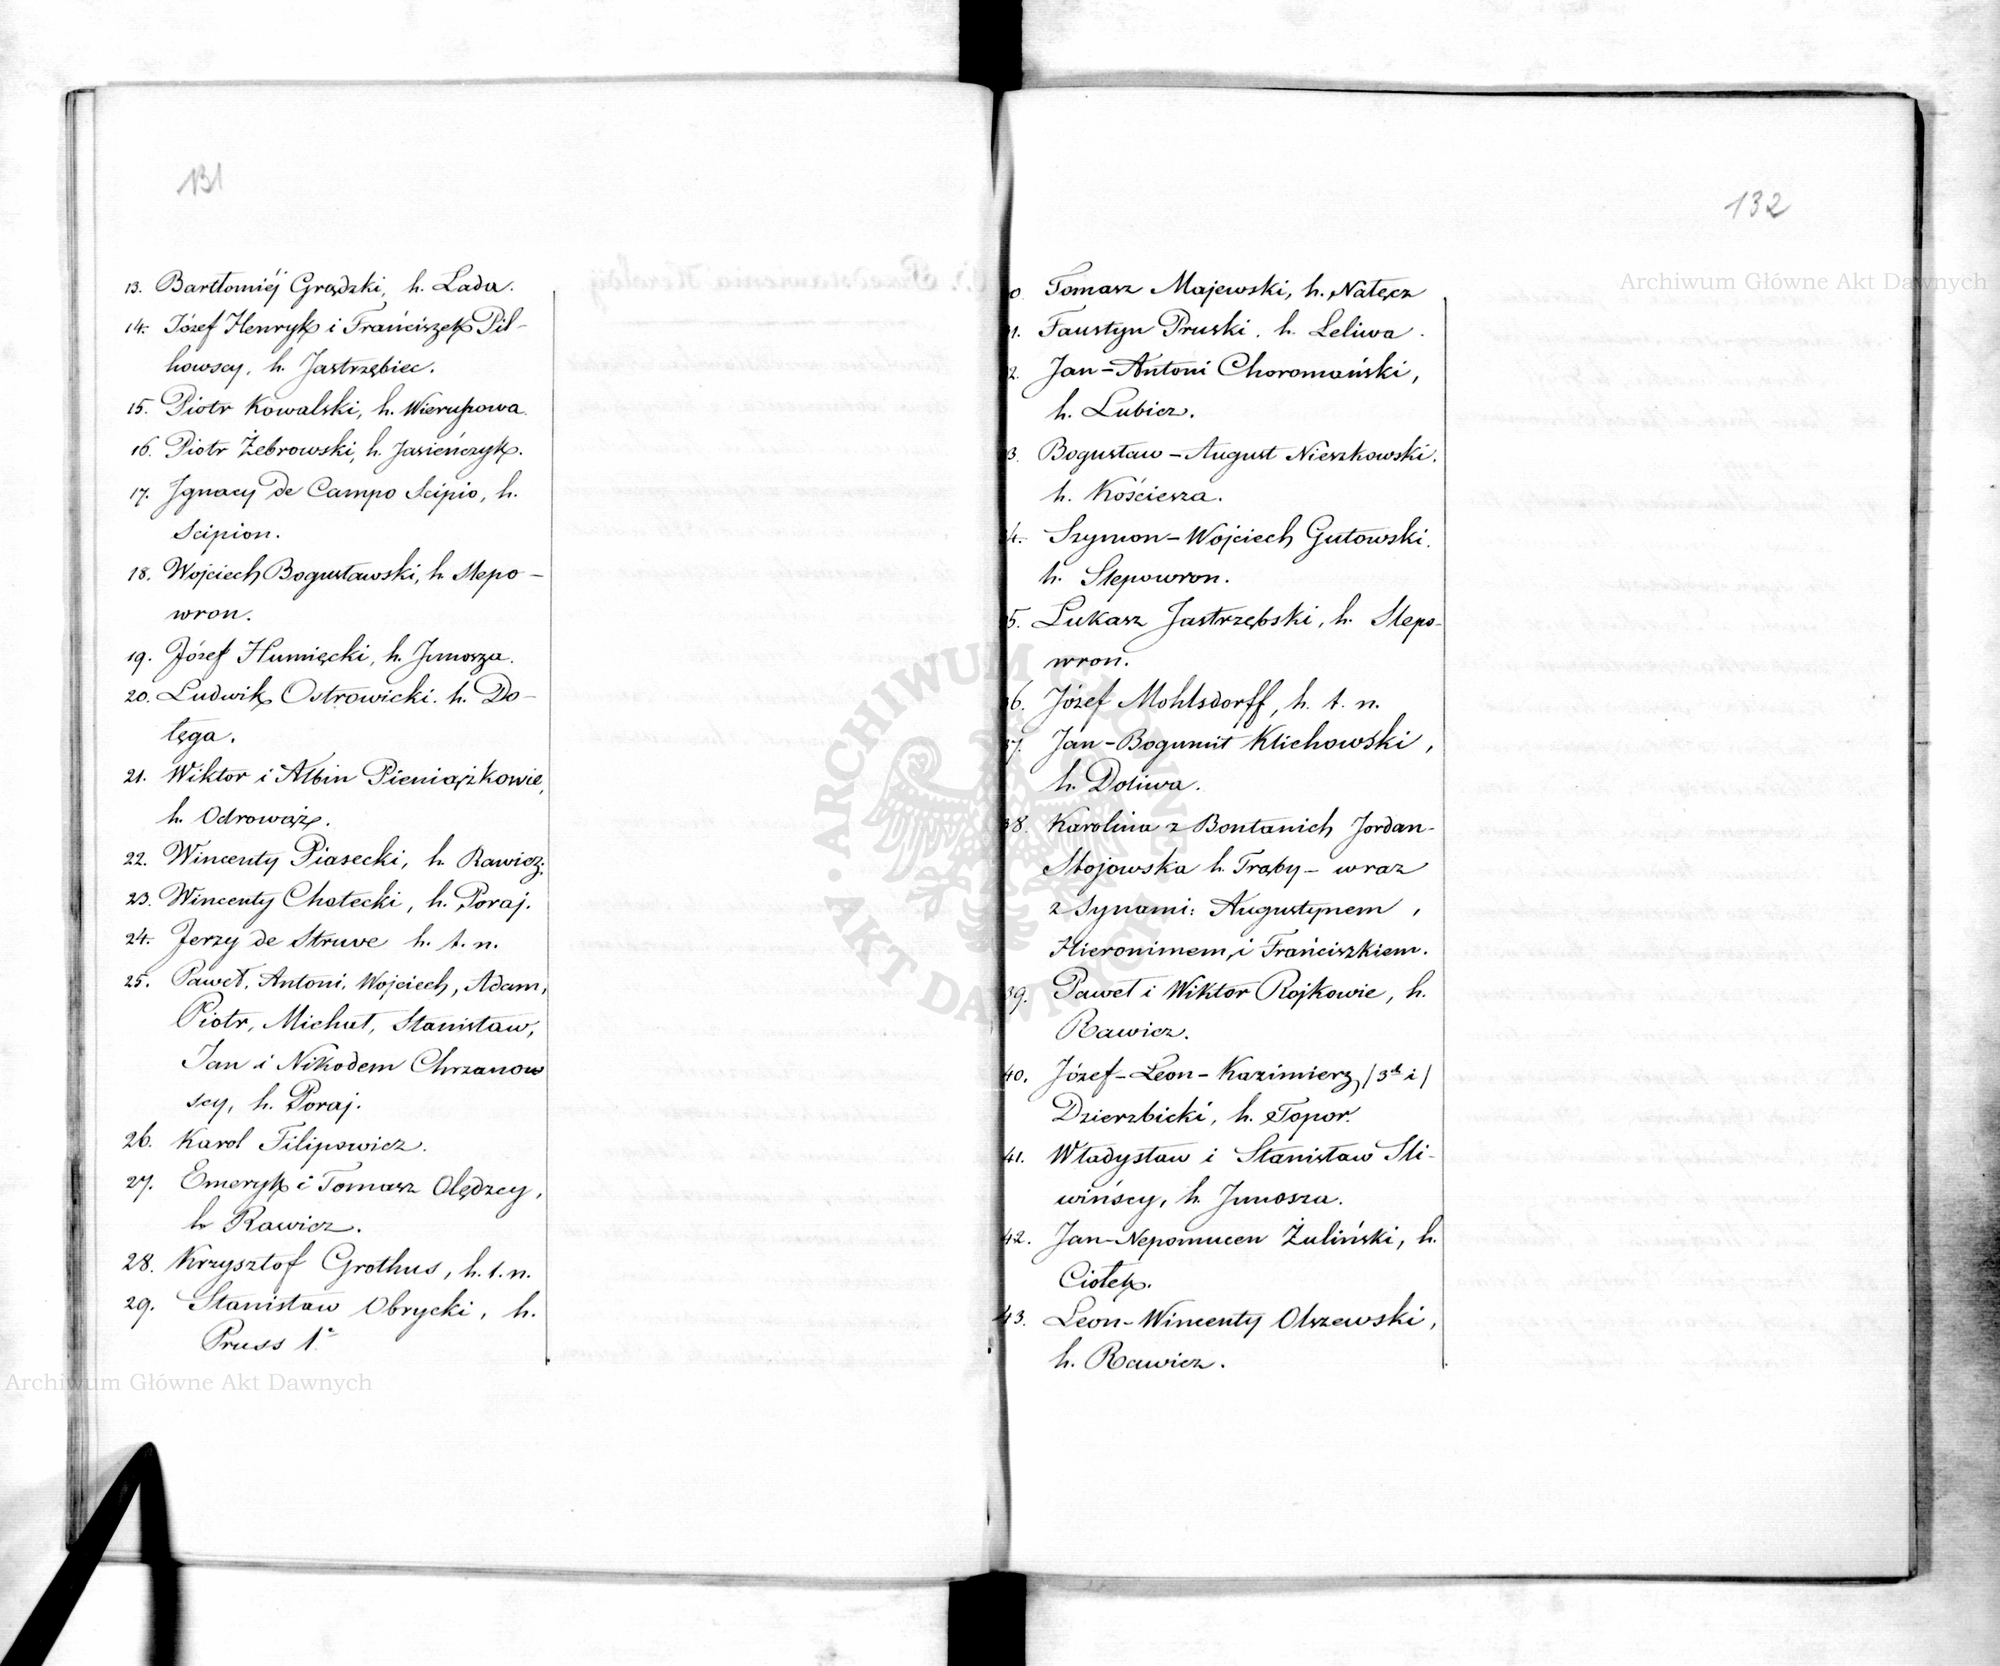 131
13. Bartłomiéj Grądzki, h. Łada.
14. Józef Henryk i Franciszek Pil-
howscy, h. Jastrzębiec.
15. Piotr Kowalski, h. Wierusowa.
16. Piotr Żebrowski, h. Jasieńczyk.
17. Ignacy de Campo Scipio, h.
Scipion.
18. Wojciech Bogusławski, h. Ślepo-
wron.
19. Józef Humięcki, h. Junosza.
20. Ludwik Ostrowicki. h. Do-
łęga.
21. Wiktor i Albin Pieniążkowie,
h. Odrowąż.
22. Wincenty Piasecki, h. Rawicz.
23. Wincenty Chałecki, h. Poraj.
24. Jerzy de Struve h. t. n.
25. Paweł, Antoni, Wojciech, Adam,
Piotr, Michał, Stanisław,
Jan i Nikodem Chrzanow
scy, h. Poraj.
26. Karol Filipowicz.
27. Emeryk i Tomasz Olędzcy,
h Rawicz.
28. Krzysztof Grothus, h. t. n.
29. Stanisław Obrycki, h.
Pruss 1.º
132
0. Tomasz Majewski, h. Nałęcz
1. Faustyn Pruski, h. Leliwa.
2. Jan-Antoni Choromański,
h. Lubicz.
3. Bogusław-August Nieszkowski.
h. Kościesza.
4. Szymon-Wojciech Gutowski.
h. Ślepowron.
5. Łukasz Jastrzębski, h. Ślepo-
wron.
36. Józef Mohlsdorff, h. t. n.
37. Jan-Bogumił Klichowski,
h. Doliwa.
38. Karolina z Bontanich Jordan-
Stojowska h. Trąby- wraz
z Synami: Augustynem,
Hieronimem, i Franciszkiem.
39. Paweł i Wiktor Rojkowie, h.
Rawicz.
40. Józef-Leon-Kazimierz /3ch i/
Dzierzbicki, h. Topor.
41. Władysław i Stanisław Śli-
wińscy, h. Junosza.
42. Jan-Nepomucen Żuliński, h.
Ciołek.
43. Leon-Wincenty Olszewski,
h. Rawicz.
Archiwum Główne Akt Dawnych
Archiwum Główne Akt Dawnych
ARCHIWUM GŁÓWNE AKT DAWNYCH